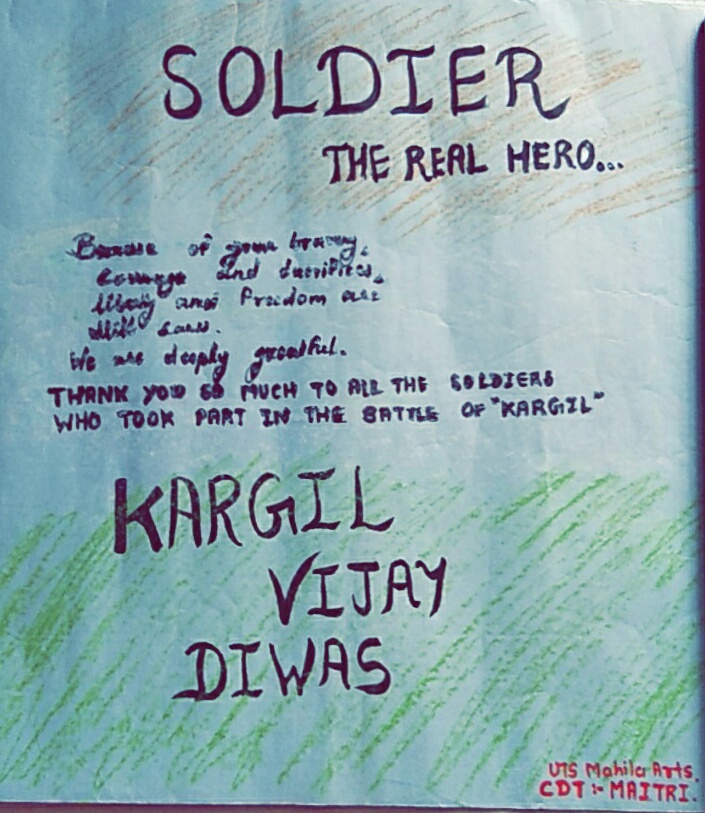 SOLDIER
THE REAL HERO...
Because of your bravery,
Courage and sacrifices,
liberty and freedom are
still ours.
We are deeply greatful.
THANK YOU SO MUCH TO ALL THE SOLDIERS
WHO TOOK PART IN THE BATTLE OF "KARGIL"
KARGIL
VIJAY
DIWAS
UTS Mahila Arts.
CDT :- MAITRI.